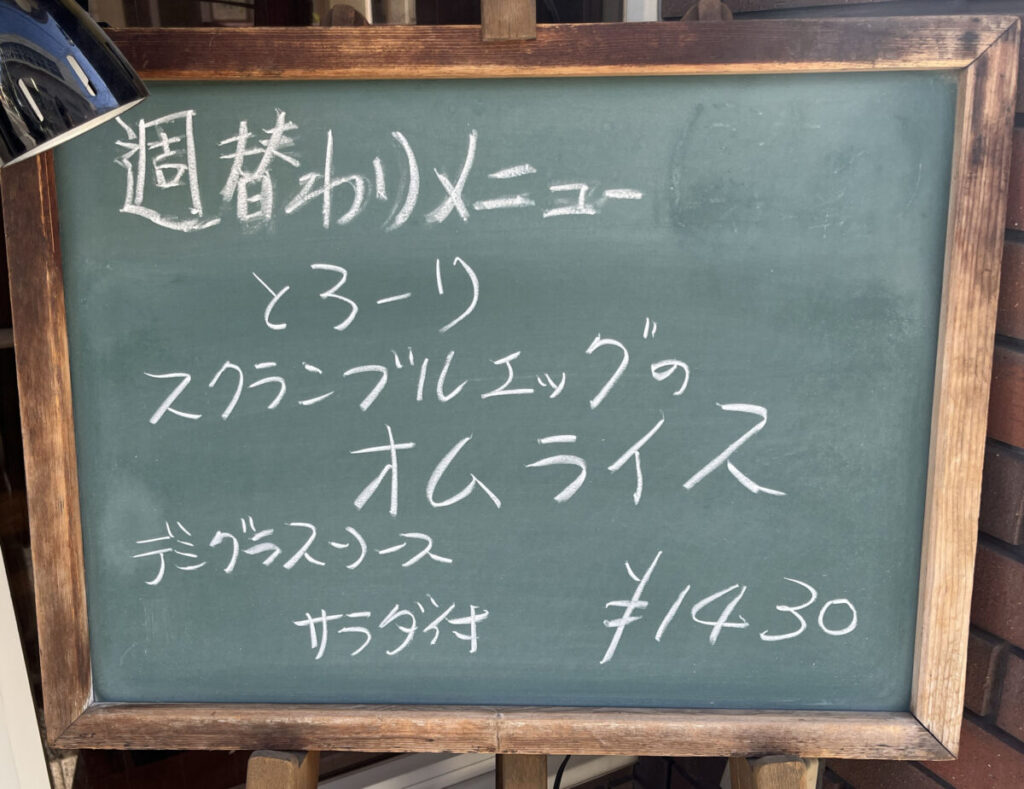 週替わりメニュー
とろーり
スクランブルエッグの
オムライス
デミグラスソース
サラダ付
¥1430